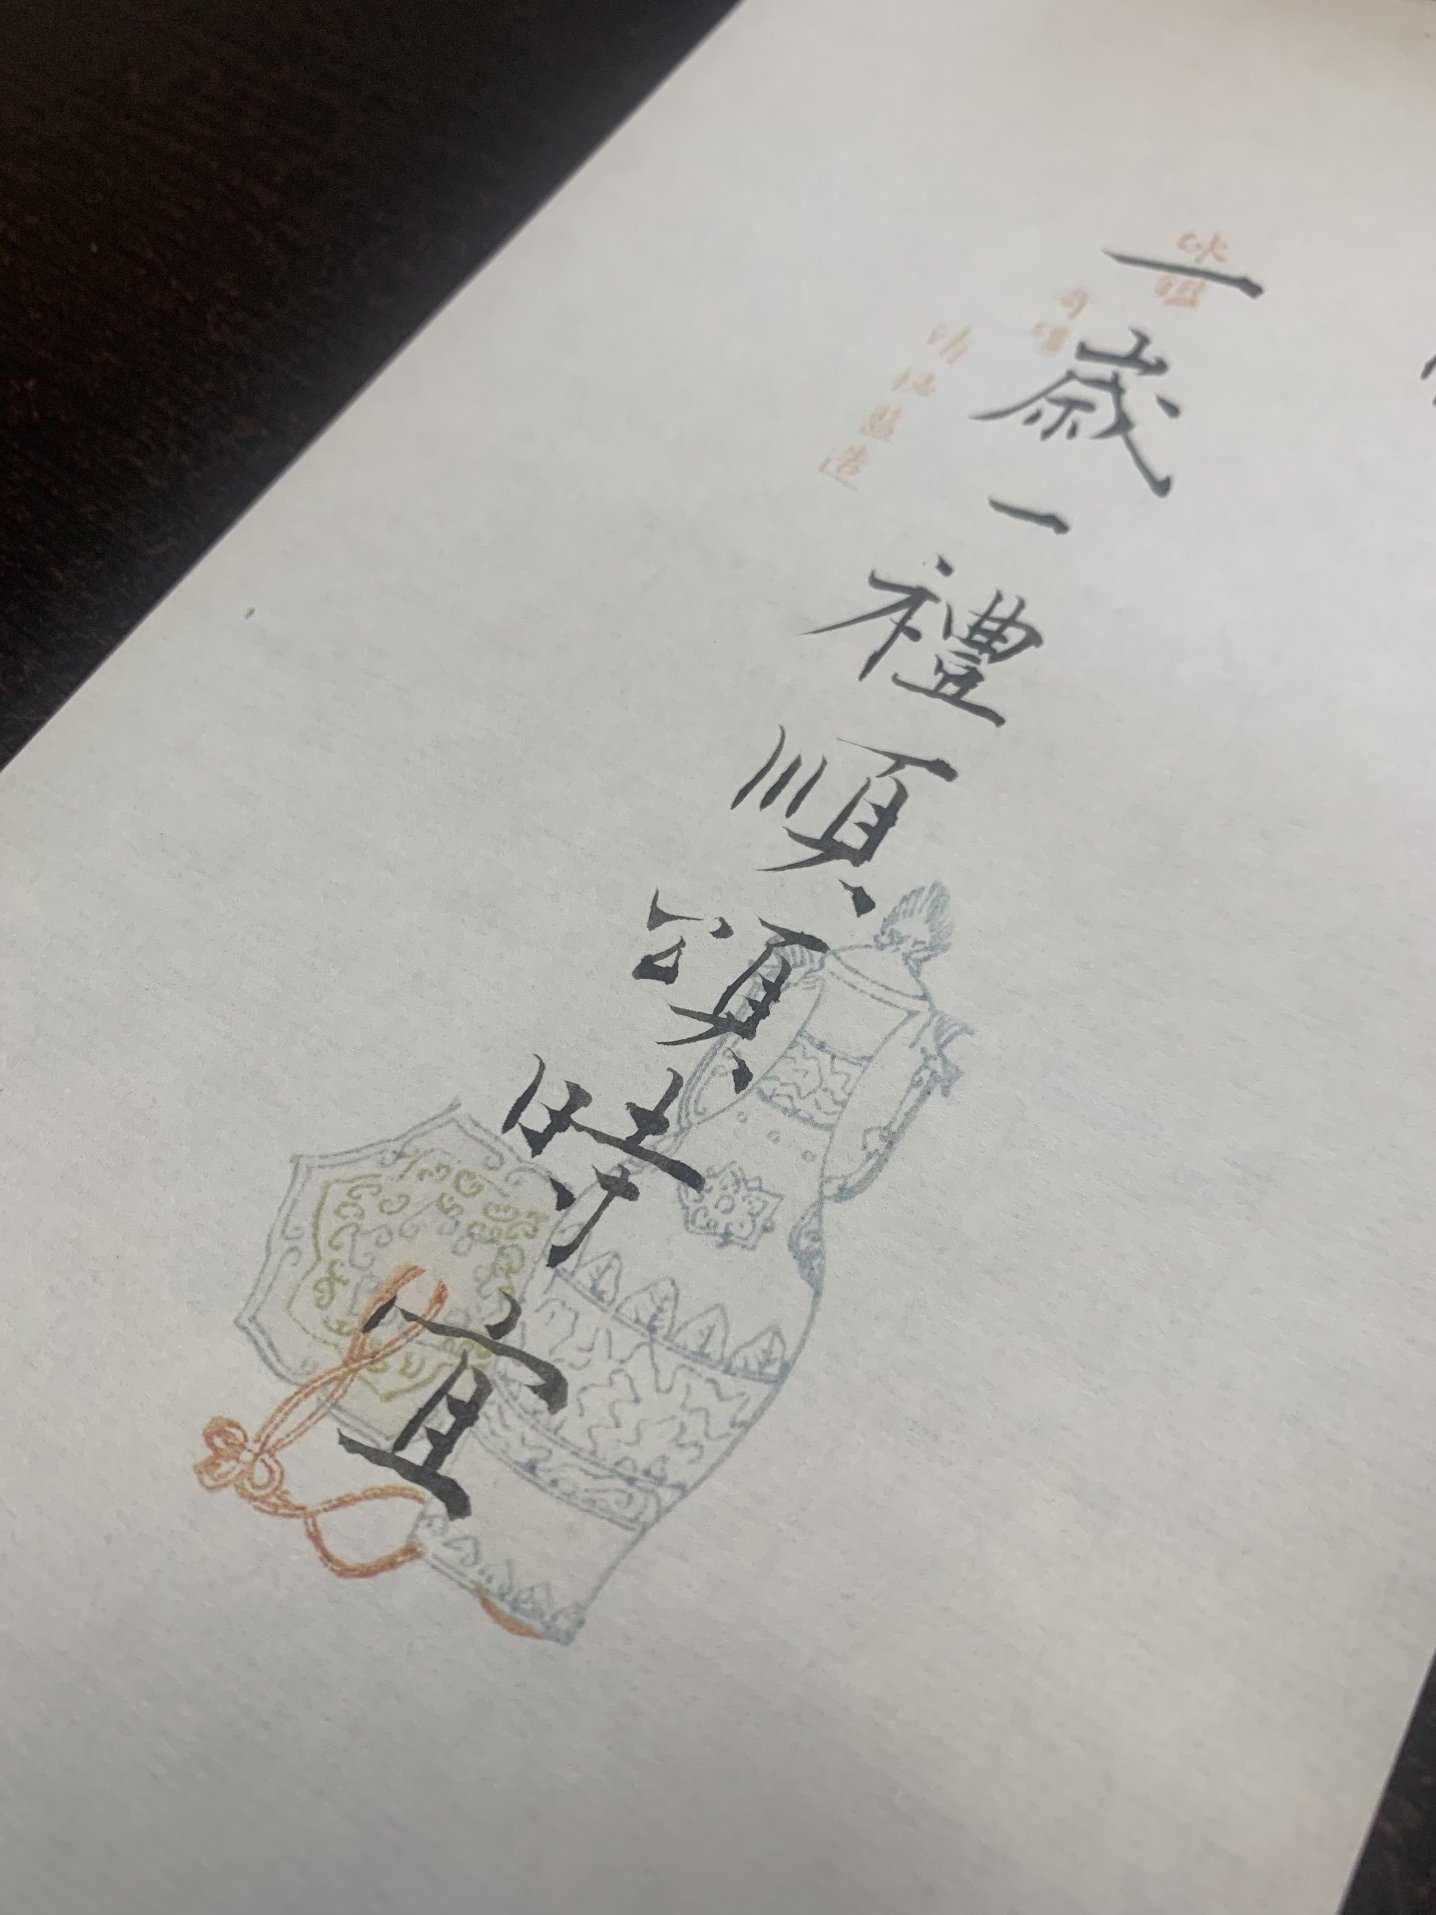 一歲一禮順頌時宜